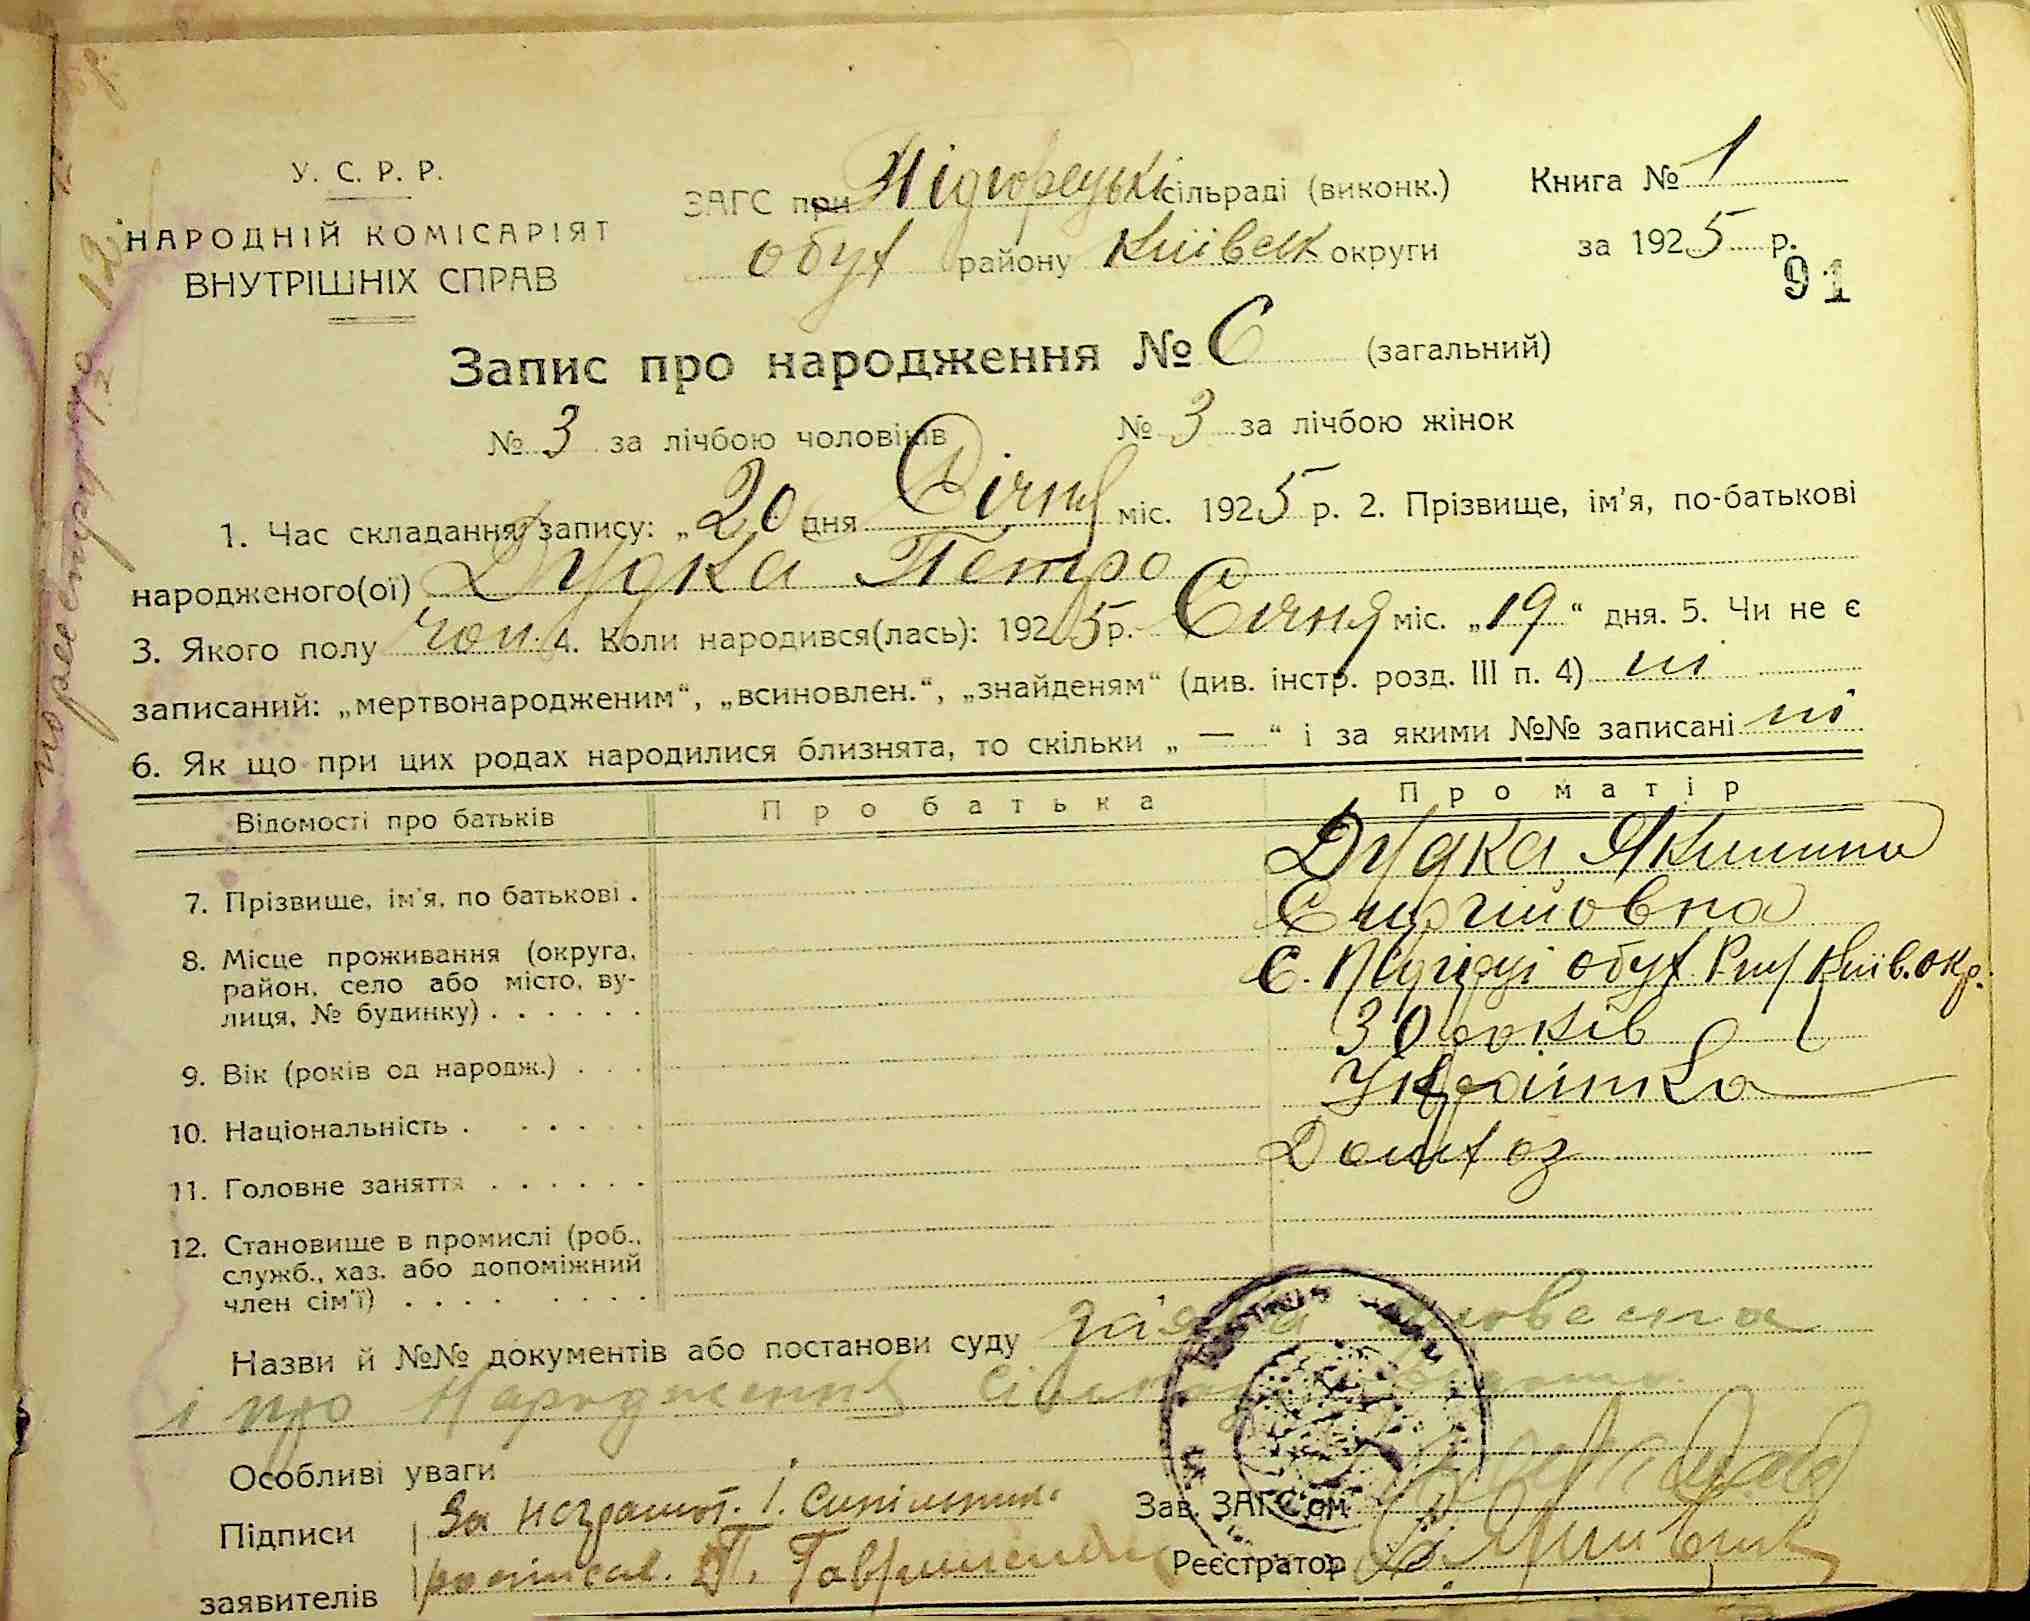 У. С. Р. Р.
НАРОДНІЙ КОМІСАРІЯТ
ВНУТРІШНІХ СПРАВ
ЗАГС при Підгорецькі сільраді (виконк.)
обух району Київськ округи
Книга № 1
за 1925 р.
91
Запис про народження № 6 (загальний)
№ 3 за лічбою чоловіків № 3 за лічбою жінок
1. Час складання запису: „20 дня Січня міс. 1925 р. 2. Прізвище, ім'я, по-батькові
народженого(ої) Дудка Петро
3. Якого полу чол. 4. Коли народився(лась): 1925 р. Січня міс. „19“ дня. 5. Чи не є
записаний: „мертвонародженим“, „всиновлен.“, „знайденям“ (див. інстр. розд. III п. 4) ні
6. Як що при цих родах народилися близнята, то скільки „ — “ і за якими №№ записані ні
Відомості про батьків Про батька Про матір
7. Прізвище, ім'я, по батькові . Дудка Якилина
8. Місце проживання (округа,
район, село або місто, ву-
лиця, № будинку) . . . . . .
С. Підгірці обух. Київ. окр.
9. Вік (років од народж.) . . . 30 років
10. Національність . . . . . . Українка
11. Головне заняття . . . . . .
12. Становище в промислі (роб.,
служб., хаз. або допоміжний
член сім'ї) . . . . . . . .
Назви й №№ документів або постанови суду заява словесна
і про народження
Особливі уваги
Підписи
заявителів
За неграмот. І.
росписав. П.
Зав. ЗАГС'ом
Реєстратор